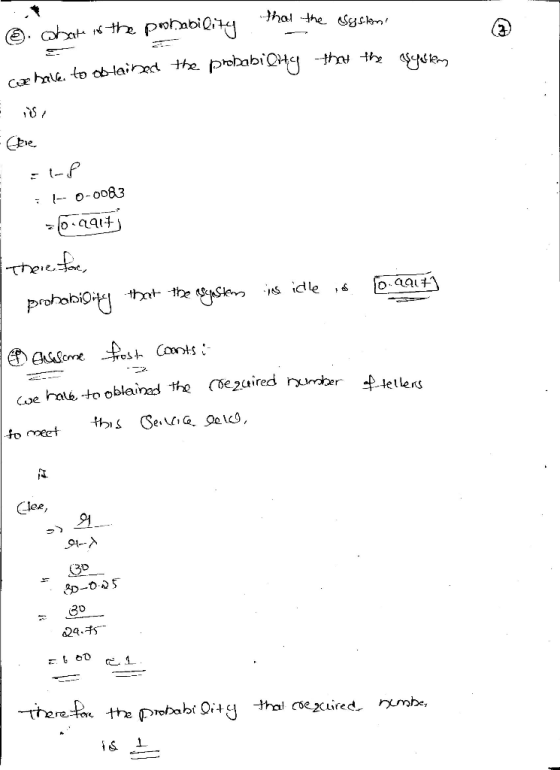 ⑦
Ⓔ. What is the probability that the system
we have to obtained the probability that the system
is,
= 1-ρ
= 1- 0.0083
= 0.9917
Therefore,
probability that the system is idle is 0.9917
Ⓕ frost
we have to obtained the required number of tellers
to meet this Service
=>
= 30
30-0.25
= 30
29.75
= 1.00 ≈ 1
Therefore the probability that required number
is 1